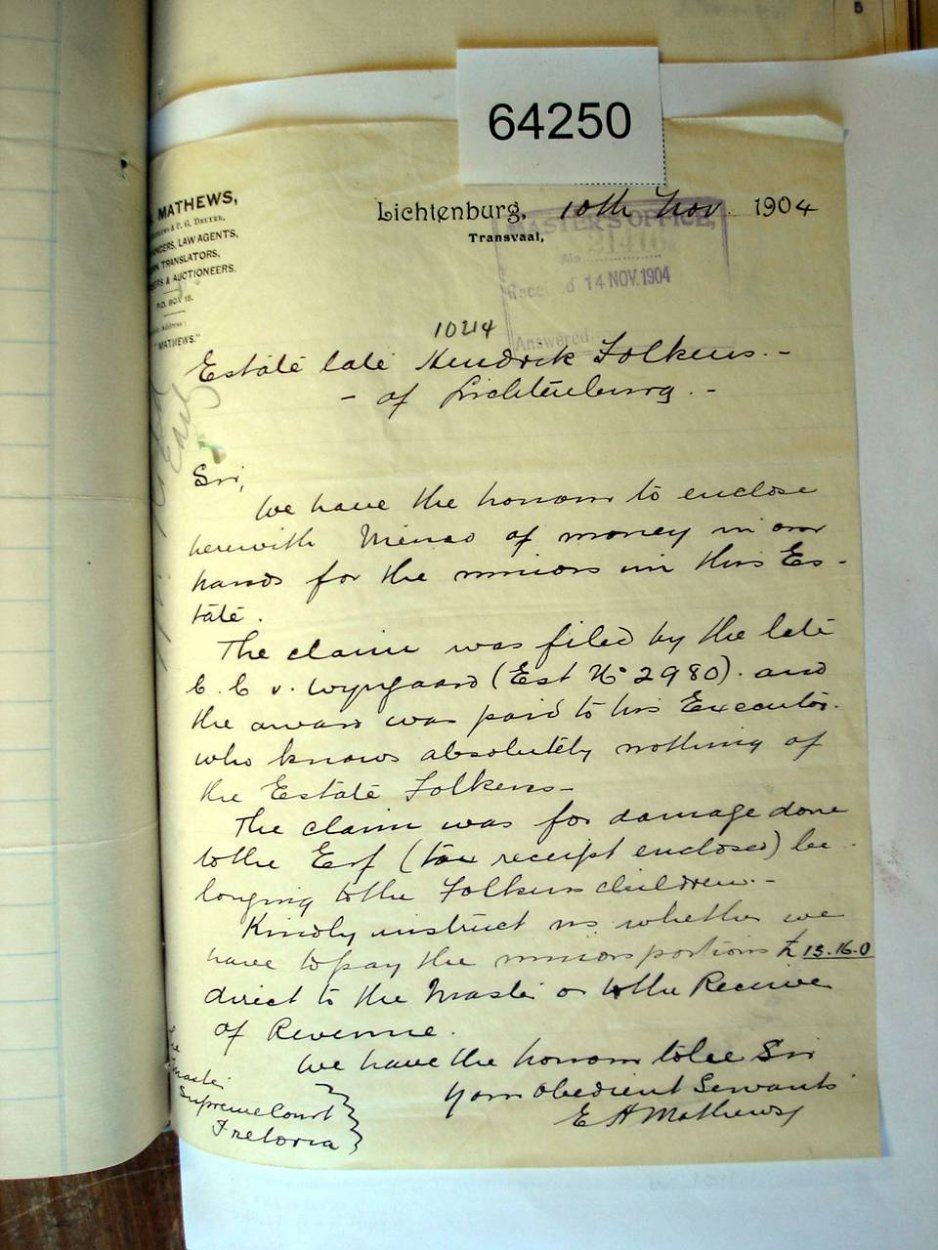 64250
MATHEWS,
& P. G. DREYER,
LAW AGENTS,
TRANSLATORS,
& AUCTIONEERS.
P.O. BOX 18.
Address:
"MATHEWS."
Lichtenburg, 10th Nov. 1904
Transvaal,
MASTER'S OFFICE,
No
Received 14 NOV. 1904
Answered
10214
Estate late Hendrik Folkens.-
- of Lichtenburg.-
Sir,
We have the honour to enclose
herewith Memo of money in our
hands for the minors in this Es-
tate.
The claim was filed by the late
C. C v. Wyngaard (Est No 2980). and
the award was paid to his Executor.
who knows absolutely nothing of
the Estate Folkens-
The claim was for damage done
to the Erf (tax receipt enclosed) be-
longing to the Folkens children.-
Kindly instruct us whether we
have to pay the minors portions £ 13.16.0
direct to the Master or to the Receiver
of Revenue.
We have the honour to be Sir
Your obedient Servants
E H Mathews
The Master
Supreme Court
Pretoria